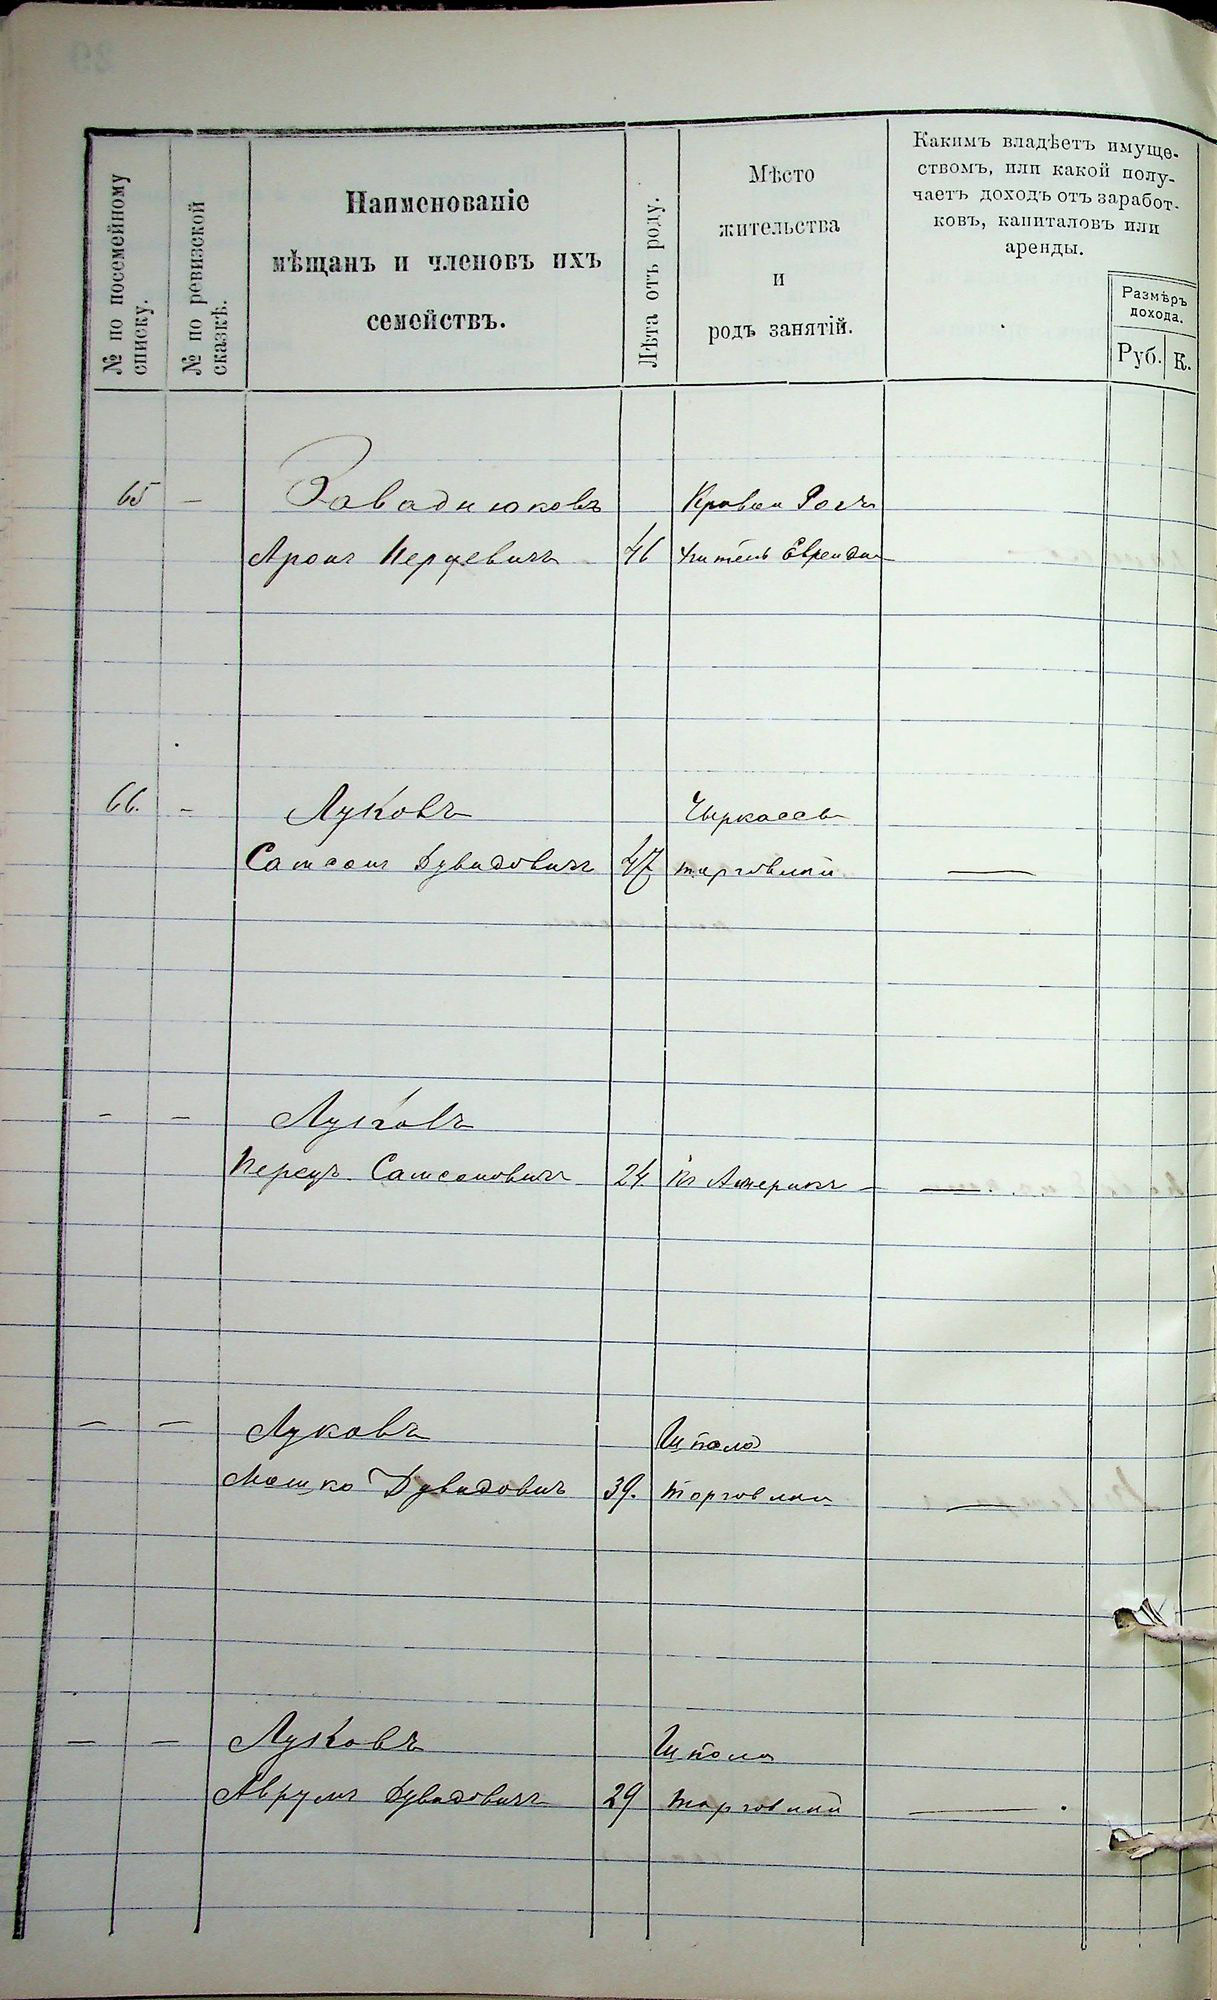 № по посемейному
списку.
№ по ревизской
сказкѣ.
Наименованіе
мѣщанъ и членовъ ихъ
семействъ.
Лѣта отъ роду.
Мѣсто
жительства
и
родъ занятій.
Какимъ владѣетъ имуще-
ствомъ, или какой полу-
чаетъ доходъ отъ заработ-
ковъ, капиталовъ или
аренды.
Размѣръ
дохода.
Руб. К.
65 — Завадюковъ Кривой Рогъ
Аронъ Перцевичъ 46
66. — Луковъ Чыркассы
Самсонъ Дувидовичъ 47 торговлей —
— — Луковъ
Перецъ Самсоновичъ 24 въ Америкѣ — —
— — Луковъ Шпола
Мошко Дувидовичъ 39. торговлей —
— — Луковъ Шпола
Аврумъ Дувидовичъ 29 торговлей —